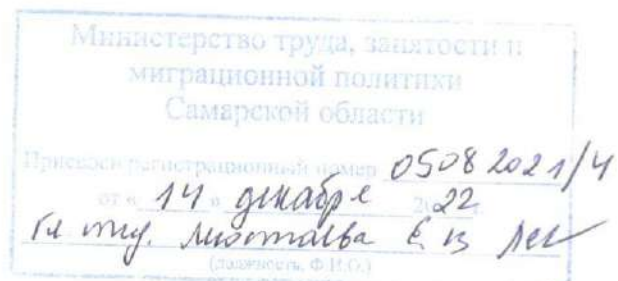 Министерство труда, занятости и
миграционной политики
Самарской области
Присвоен регистрационный номер 05082021/4
от « 14 » декабря 2022 г.
Гл. 
(должность, Ф.И.О.)